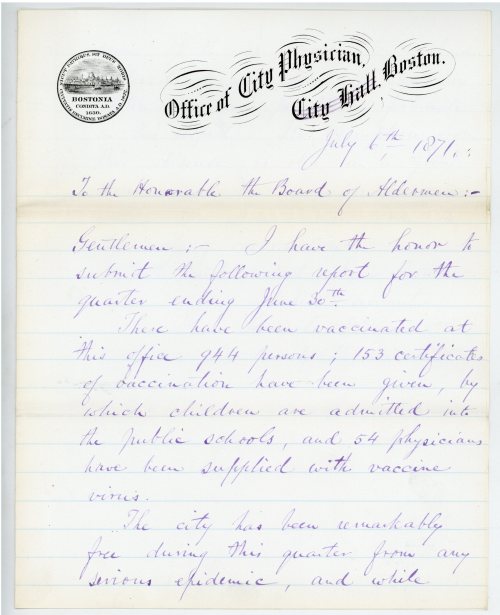 BOSTONIA
CONDITA A.D.
1630.
Office of City Physician,
City Hall, Boston.
July 6th 1871.
To the Honorable the Board of Aldermen:-
Gentlemen:- I have the honor to
submit the following report for the
quarter ending June 30th.
There have been vaccinated at
this office 944 persons; 153 certificates
of vaccination have been given, by
which children are admitted into
the public schools, and 54 physicians
have been supplied with vaccine
virus.
The city has been remarkably
free during this quarter from any
serious epidemic, and while